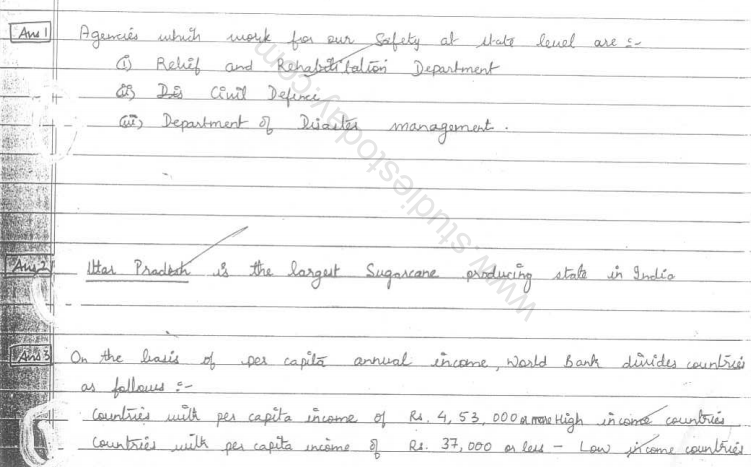 Ans 1 Agencies which work for our Safety at state level are :-
(i) Relief and Rehabilitation Department
(ii) Civil Defence
(iii) Department of Disaster management.
www.studiestoday.com
Ans 2 Uttar Pradesh is the largest Sugarcane producing state in India
Ans 3 On the basis of per capita annual income, World Bank divides countries
as follows :-
Countries with per capita income of Rs. 4,53,000 or more High income countries
Countries with per capita income of Rs. 37,000 or less - Low income countries